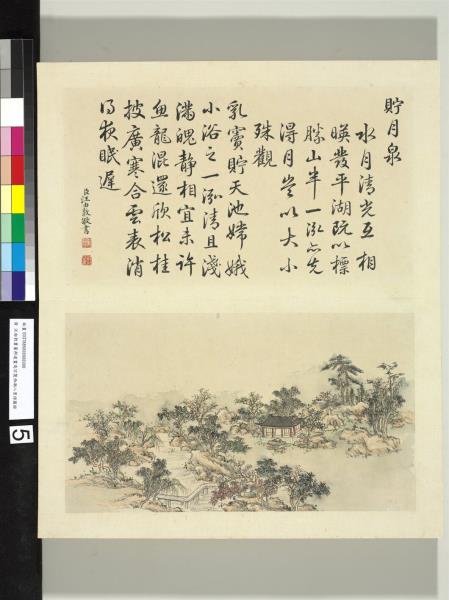 貯月泉
水月清光互相
暎發平湖既以標
勝山半一泓亦先
得月豈以大小
殊觀
乳竇貯天池嫦娥
小浴之一泓清且淺
滿魄静相宜未許
魚龍混還欣松桂
披廣寒合雲表消
得夜眠遲
臣汪由敦敬書
5